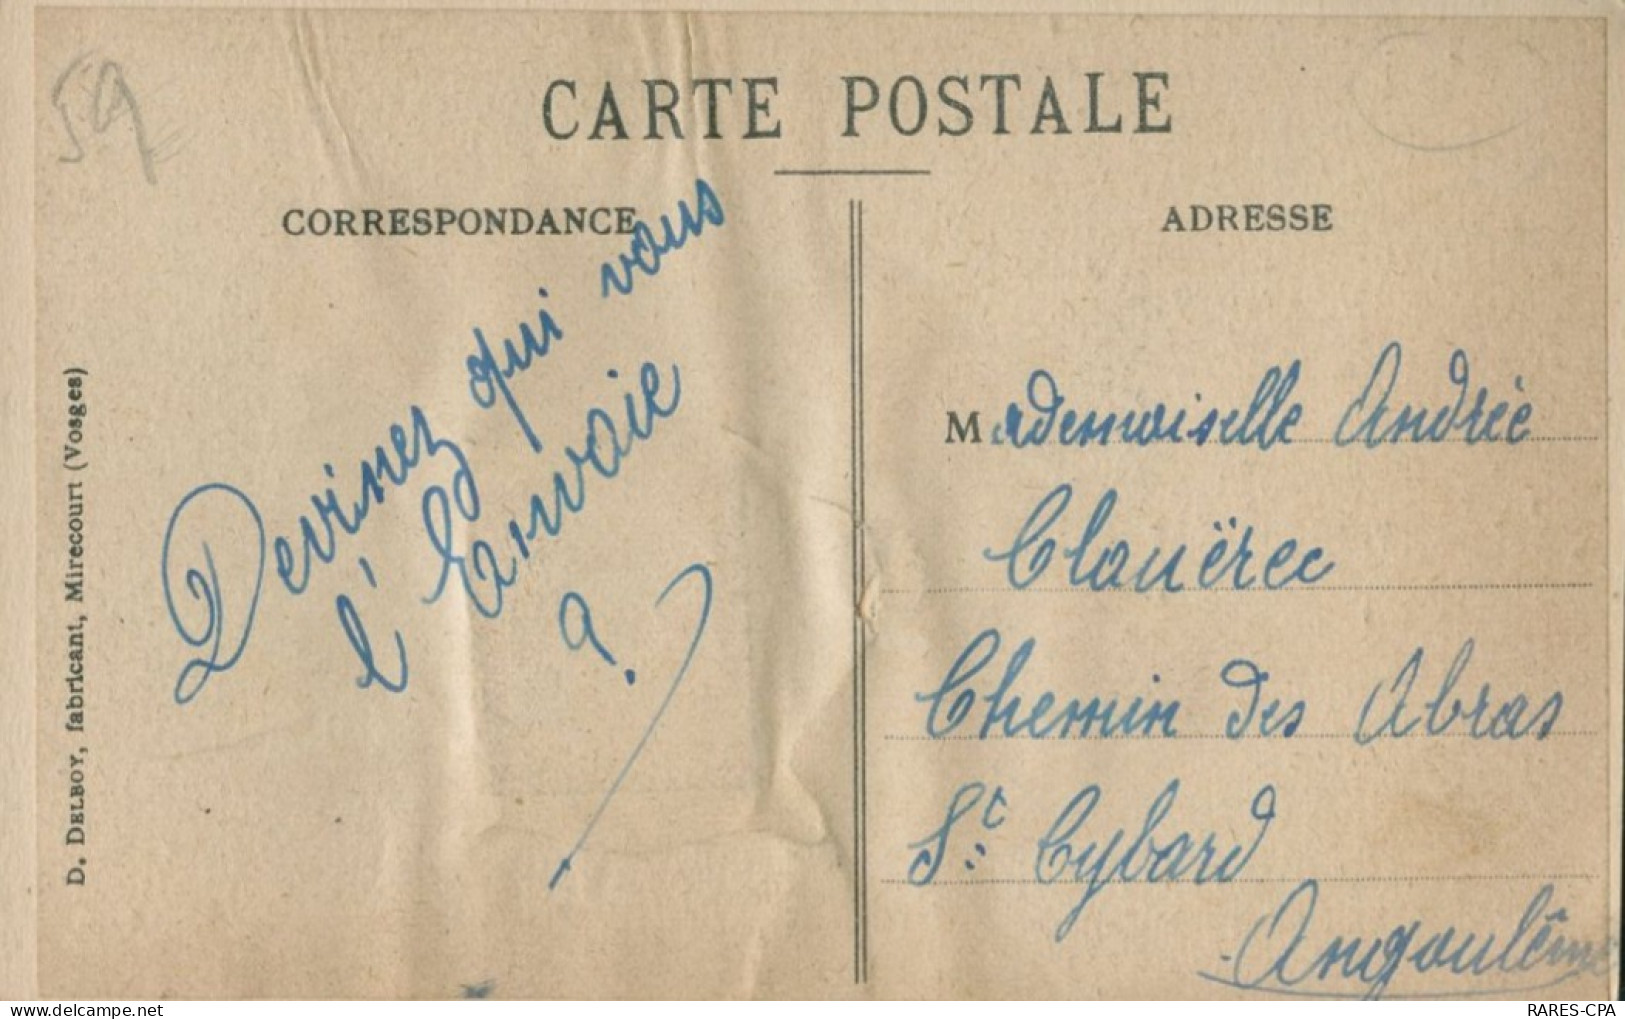 59
CARTE POSTALE
CORRESPONDANCE
ADRESSE
Devinez qui vous
l'Envoie
?
Mademoiselle Andrée
Clouërec
Chemin des Abras
St Cybard
Angoulême
D. DELBOY, fabricant, Mirecourt (Vosges)
RARES-CPA